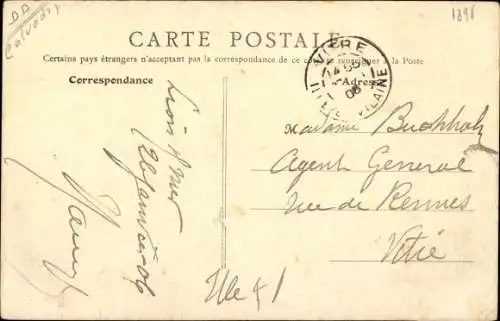 DD
Calvados
1891
CARTE POSTALE
Certains pays étrangers n'acceptent pas la correspondance de ce côté, se renseigner à la Poste
Correspondance
Adresse
VITRÉ
ILLE-&-VILAINE
06
Madame Buchholz
Agent General
rue de Rennes
Vitré
Ille & V
Lion s/ mer